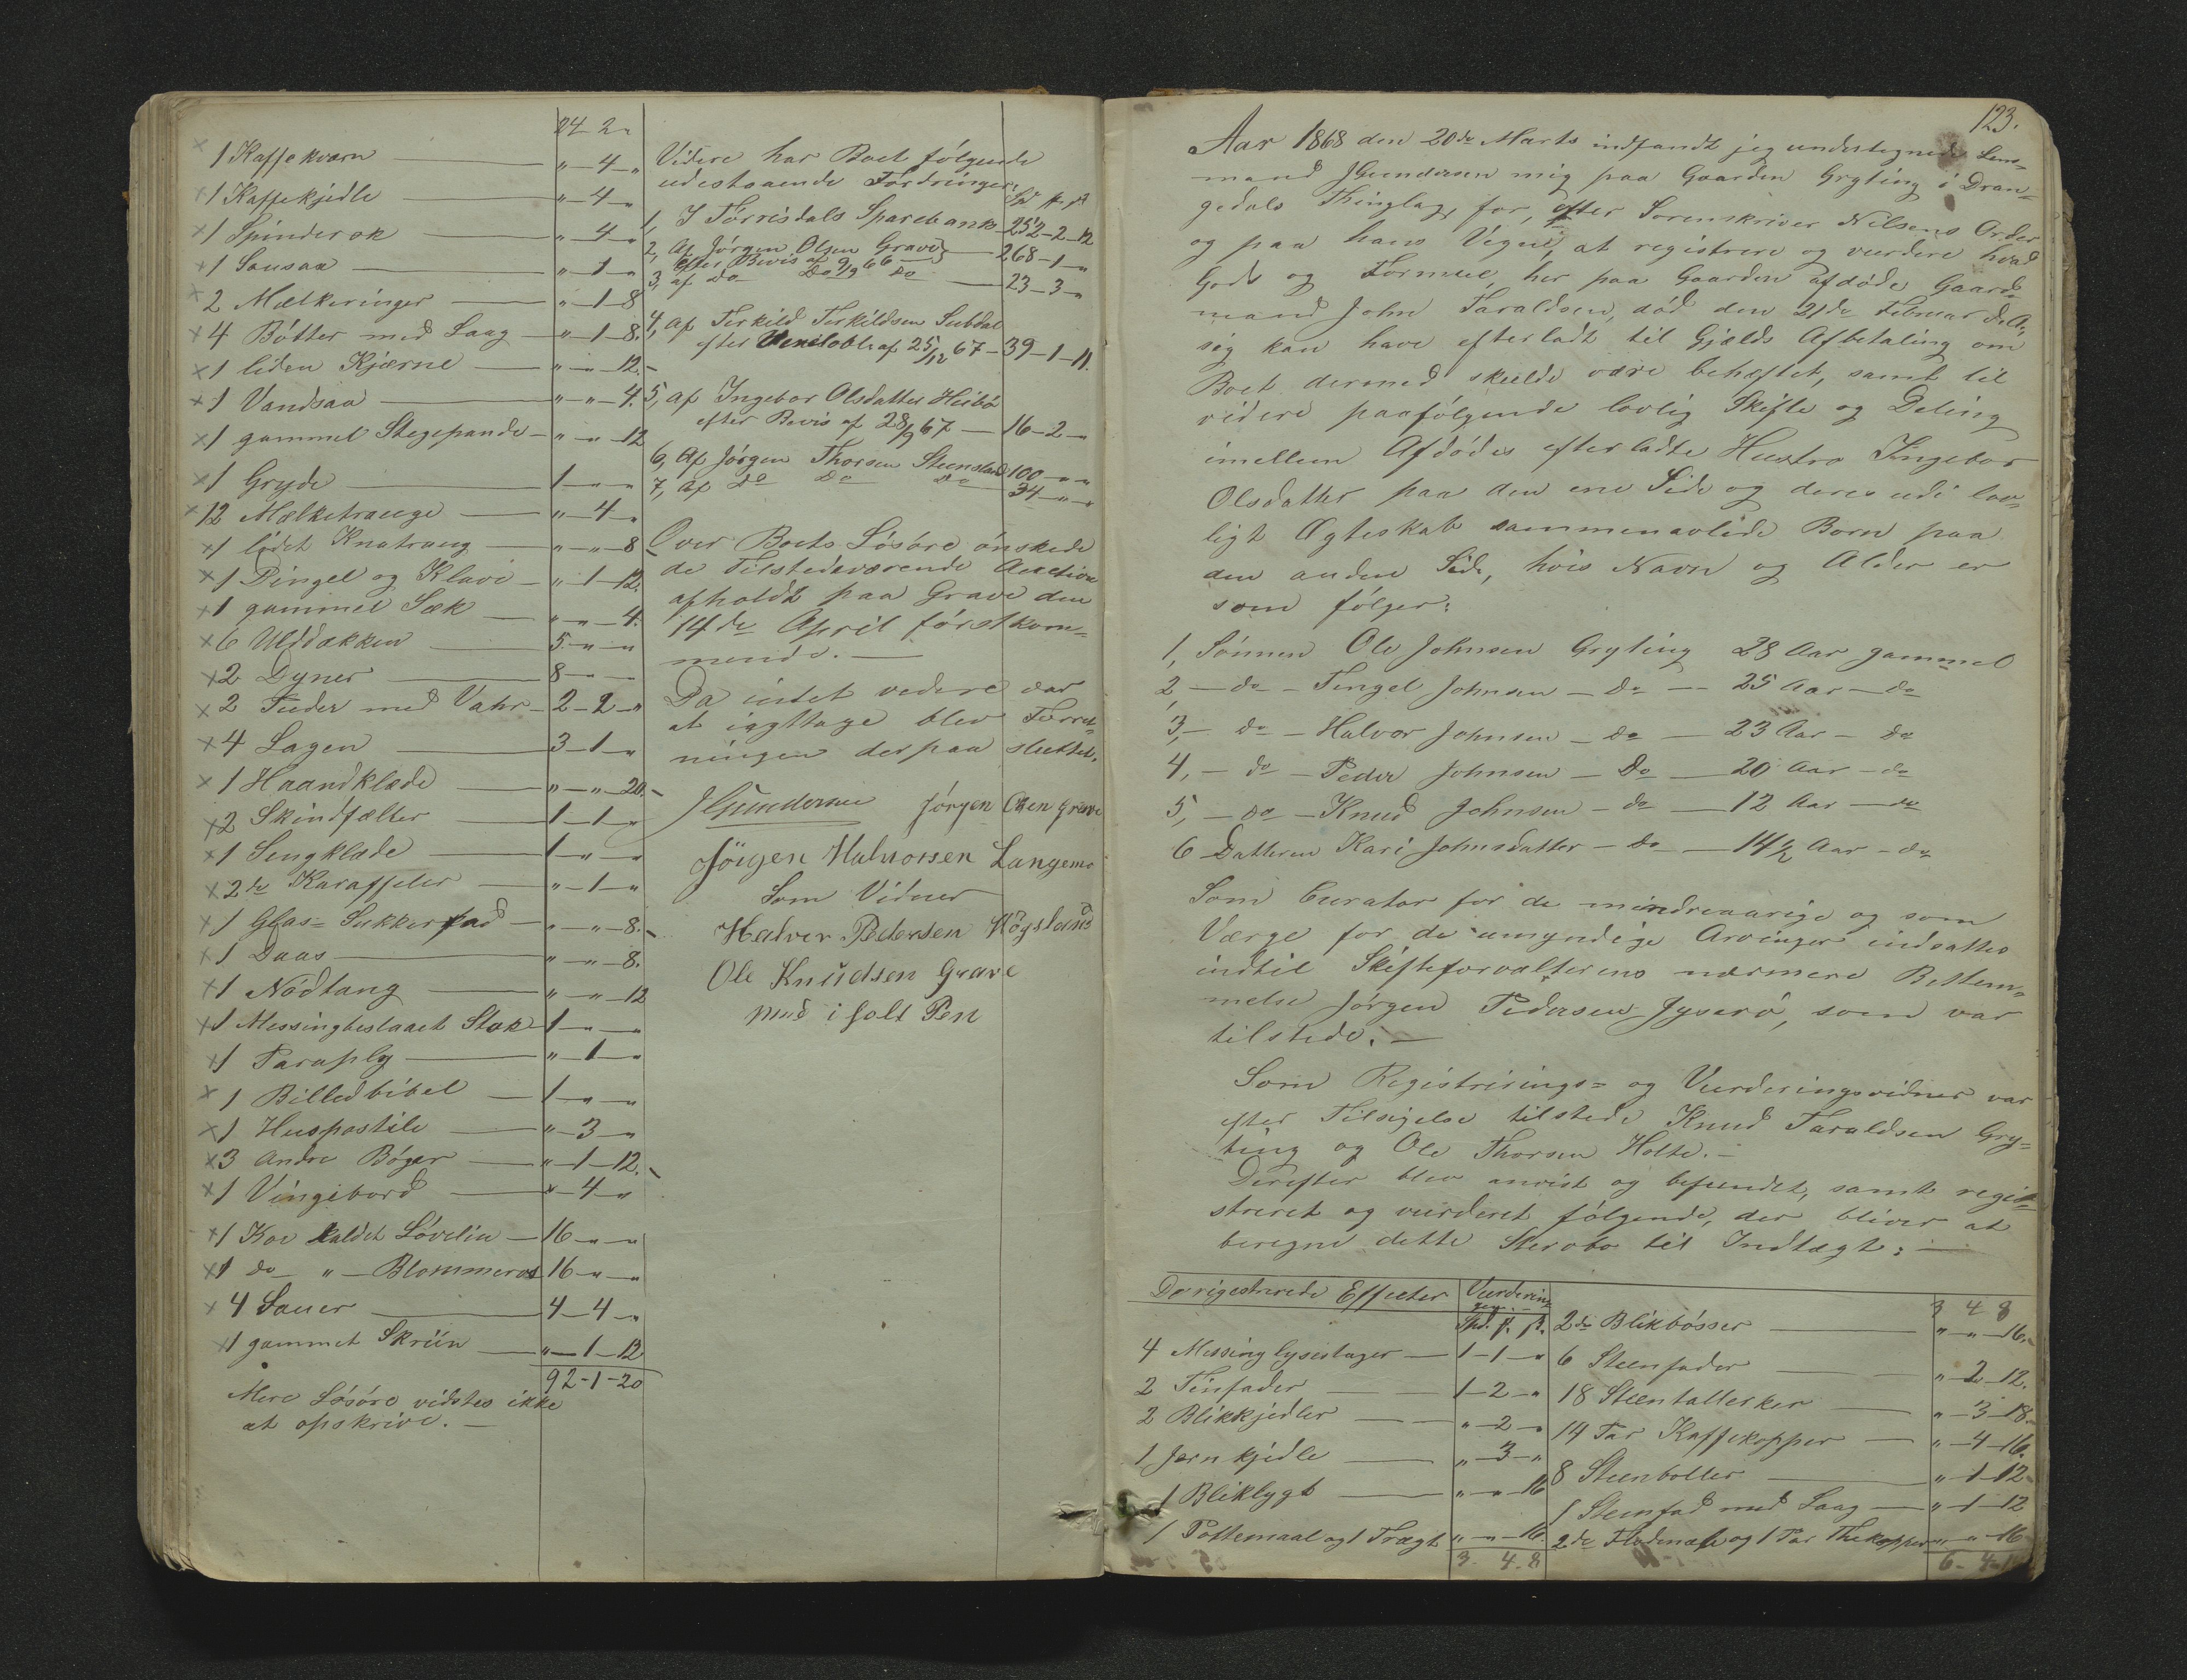 24-2-"
1 Kaffekværn "-4-"
1 Kaffekjedle "-4-"
1 Spinderok "-4-"
1 Sausax "-1-"
2 Mælkeringer "-1-8
4 Bötter med Laag "-1-8.
1 liden Kjærne "-"-12.
1 Vandsaa "-"-4.
1 gammel Stegepande "-"-12
1 Gryde 1-"-"
12 Mælketrauge "-4-"
1 lidet Knatraug "-"-8
1 Pingel og Klave "-1-12.
1 gammel Sæk "-"-4.
6 Uldtækken 5-"-"
2 Dyner 8-"-"
2 Puder med Vahr 2-2-"
4 Lagen 3-1-"
1 Haandklæde "-"-20.
2 Skindfælter 1-1-"
1 Sengklæde 1-"-"
2de Karaffeler "-1-"
1 Glas-Sukkerfad "-"-8.
1 Daas "-"-8.
1 Nödtang "-"-12
1 Messingbeslaaet Stok 1-"-"
1 Paraply "-1-"
1 Billedbibel 1-"-"
1 Huspostile "-3-"
3 Andre Böger "-1-12.
1 Vingebord "-4-"
1 Koe kaldet Lövelin 16-"-"
1 do " Blommeros 16-"-"
4 Sauer 4-4-"
1 gammelt Skriin "-1-12
92-1-20
Mere Lösöre vidstes ikke
at opskrive.
Videre har Boet fölgende
udestaaende Fordringer:
1, I Törrisdals Sparebank 252-2-12
2, Af Jörgen Olsen Grave
efter Bevis af 9/9 66 268-1-"
3, af Do Do 9/9 Do 23-3-"
4, Af Terkild Terkildsen Subdal
efter Vexelobl. af 25/12 67 39-1-11.
5, af Ingebor Olsdatter Heibö
efter Bevis af 28/9 67 16-2-"
6, Af Jörgen Thorsen Steensland 100-"-"
7, Af Do Do Do 34-"-"
Over Boets Lösöre önskede
de Tilstedeværende Auction
afholdt paa Grave den
14de April förstkom-
mende.
Da intet vedere var
at iagttage blev Forret-
ningen derpaa sluttet.
JGundersen Jörgen Olsen Grave
Jörgen Halvorsen Langemo
Som Vidner
Halvor Pedersen Högslund
Ole Knudsen Grave
med i holt Pen
123.
Aar 1868 den 20de Marts indfandt jeg undertegnede Lens-
mand JGundersen mig paa Gaarden Gryting i Dran-
gedals Thinglag, for, efter Sorenskriver Nilsens Order
og paa hans Vegne, at registrere og vurdere hvad
Gods og Formue, her paa Gaarden afdöde Gaard-
mand John Taraldsen, död den 21de Februar d.A.,
sig kan have efterladt til Gjælds Afbetaling om
Boet dermed skulde være behæftet, samt til
videre paafölgende lovlig Skifte og Deling
imellem Afdödes efterladte Hustro Ingebor
Olsdatter paa den ene Side og deres udi lov-
ligt Ægteskab sammenavlede Born paa
den anden Side, hvis Navn og Alder er
som fölger:
1, Sönnen Ole Johnsen Gryting 28 Aar gammel
2, do Tengel Johnsen do 25 Aar do
3, do Halvor Johnsen do 23 Aar do
4, do Peder Johnsen Do 20 Aar do
5, do Knud Johnsen do 12 Aar do
6 Datteren Kari Johnsdatter do 14 1/2 Aar do
Som Curator for de mindreaarige og som
Værge for de umyndige Arvinger indsattes
indtil Skifteforvalterens nærmere Bestem-
melse Jörgen Pedersen, som var
tilstede.
Som Registrerings- og Vurderingsvidner var
efter Tilsigelse tilstede Knud Taraldsen Gry-
ting og Ole Thorsen Holte.
Derefter blev anvist og befundet, samt regi-
streret og vurderet fölgende, der bliver at
beregne dette Sterobo til Indtægt:
De rigestrerede Effecter Vurderin-
gen
Spd. ß. ß.
4 Messing lysestager 1-1-"
2 Tinfader 1-2-"
2 Blikkjedler "-2-"
1 Jernkjedle "-3-"
1 Bliklygt "-"-16
1 Pottemaal og 1 Tragt "-"-16.
3. 4. 8
3 4 8
2de Blikbösser "-"-16.
6 Steenfader "-2-12.
18 Steentallerker "-3-18.
14 Par Kaffekopper "-4-16.
8 Steenboller "-1-12
1 Steenfad med Laag "-1-12
2de Flödemæle og 1 Par Thekopper "-"-16